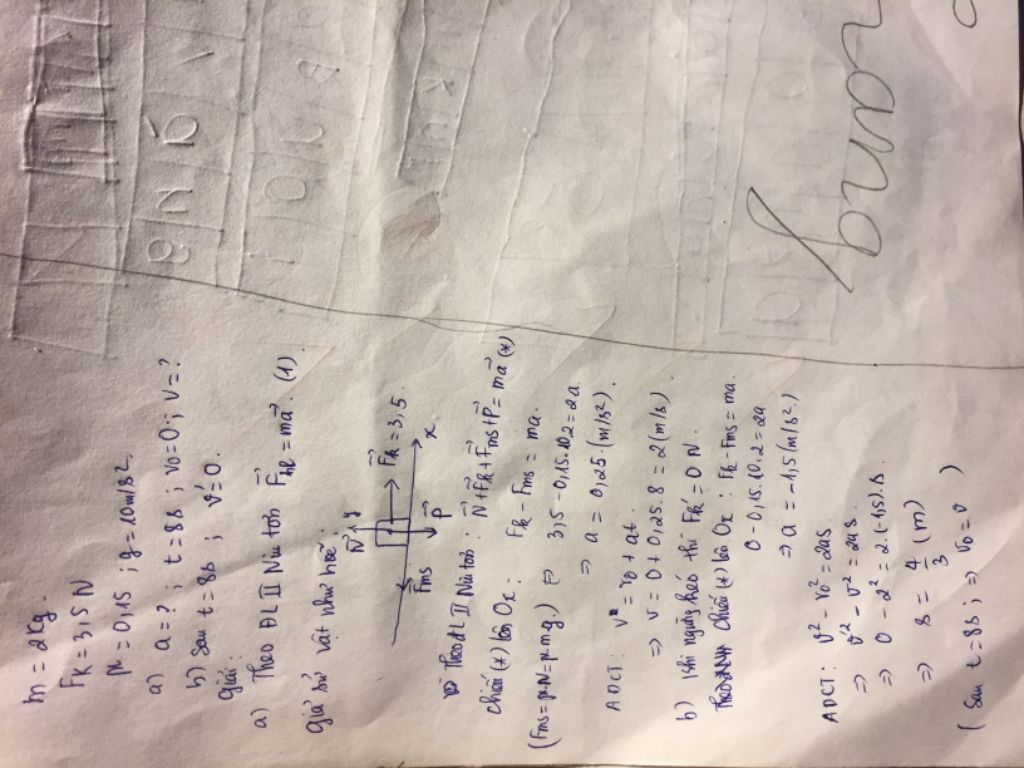 m = 2kg.
Fk = 3,5 N
μ = 0,15 ; g = 10 m/s².
a) a = ? ; t = 8s ; v₀ = 0 ; v = ?
b) sau t = 8s ; v' = 0.
giải:
a) Theo ĐL II Niu tơn F⃗hl = ma⃗. (1)
giả sử vật như hvẽ:
N⃗ y
F⃗ms F⃗k = 3,5.
P⃗ x
Theo ĐL II Niu tơn : N⃗ + F⃗k + F⃗ms + P⃗ = ma⃗ (*)
chiếu (*) lên Ox : Fk - Fms = ma.
(Fms = μN = μmg) ⇒ 3,5 - 0,15.10.2 = 2a
⇒ a = 0,25. (m/s²).
ADCT : v = v₀ + at.
⇒ v = 0 + 0,25.8 = 2 (m/s)
b) khi ngừng kéo thì Fk = 0 N.
chiếu (*) lên Ox : Fk - Fms = ma.
0 - 0,15.10.2 = 2a
⇒ a = -1,5 (m/s².)
ADCT : v² - v₀² = 2as.
⇒ v'² - v² = 2as.
⇒ 0 - 2² = 2.(-1,5).s
⇒ s = 4/3 (m)
( sau t = 8s ; ⇒ v₀ = v )